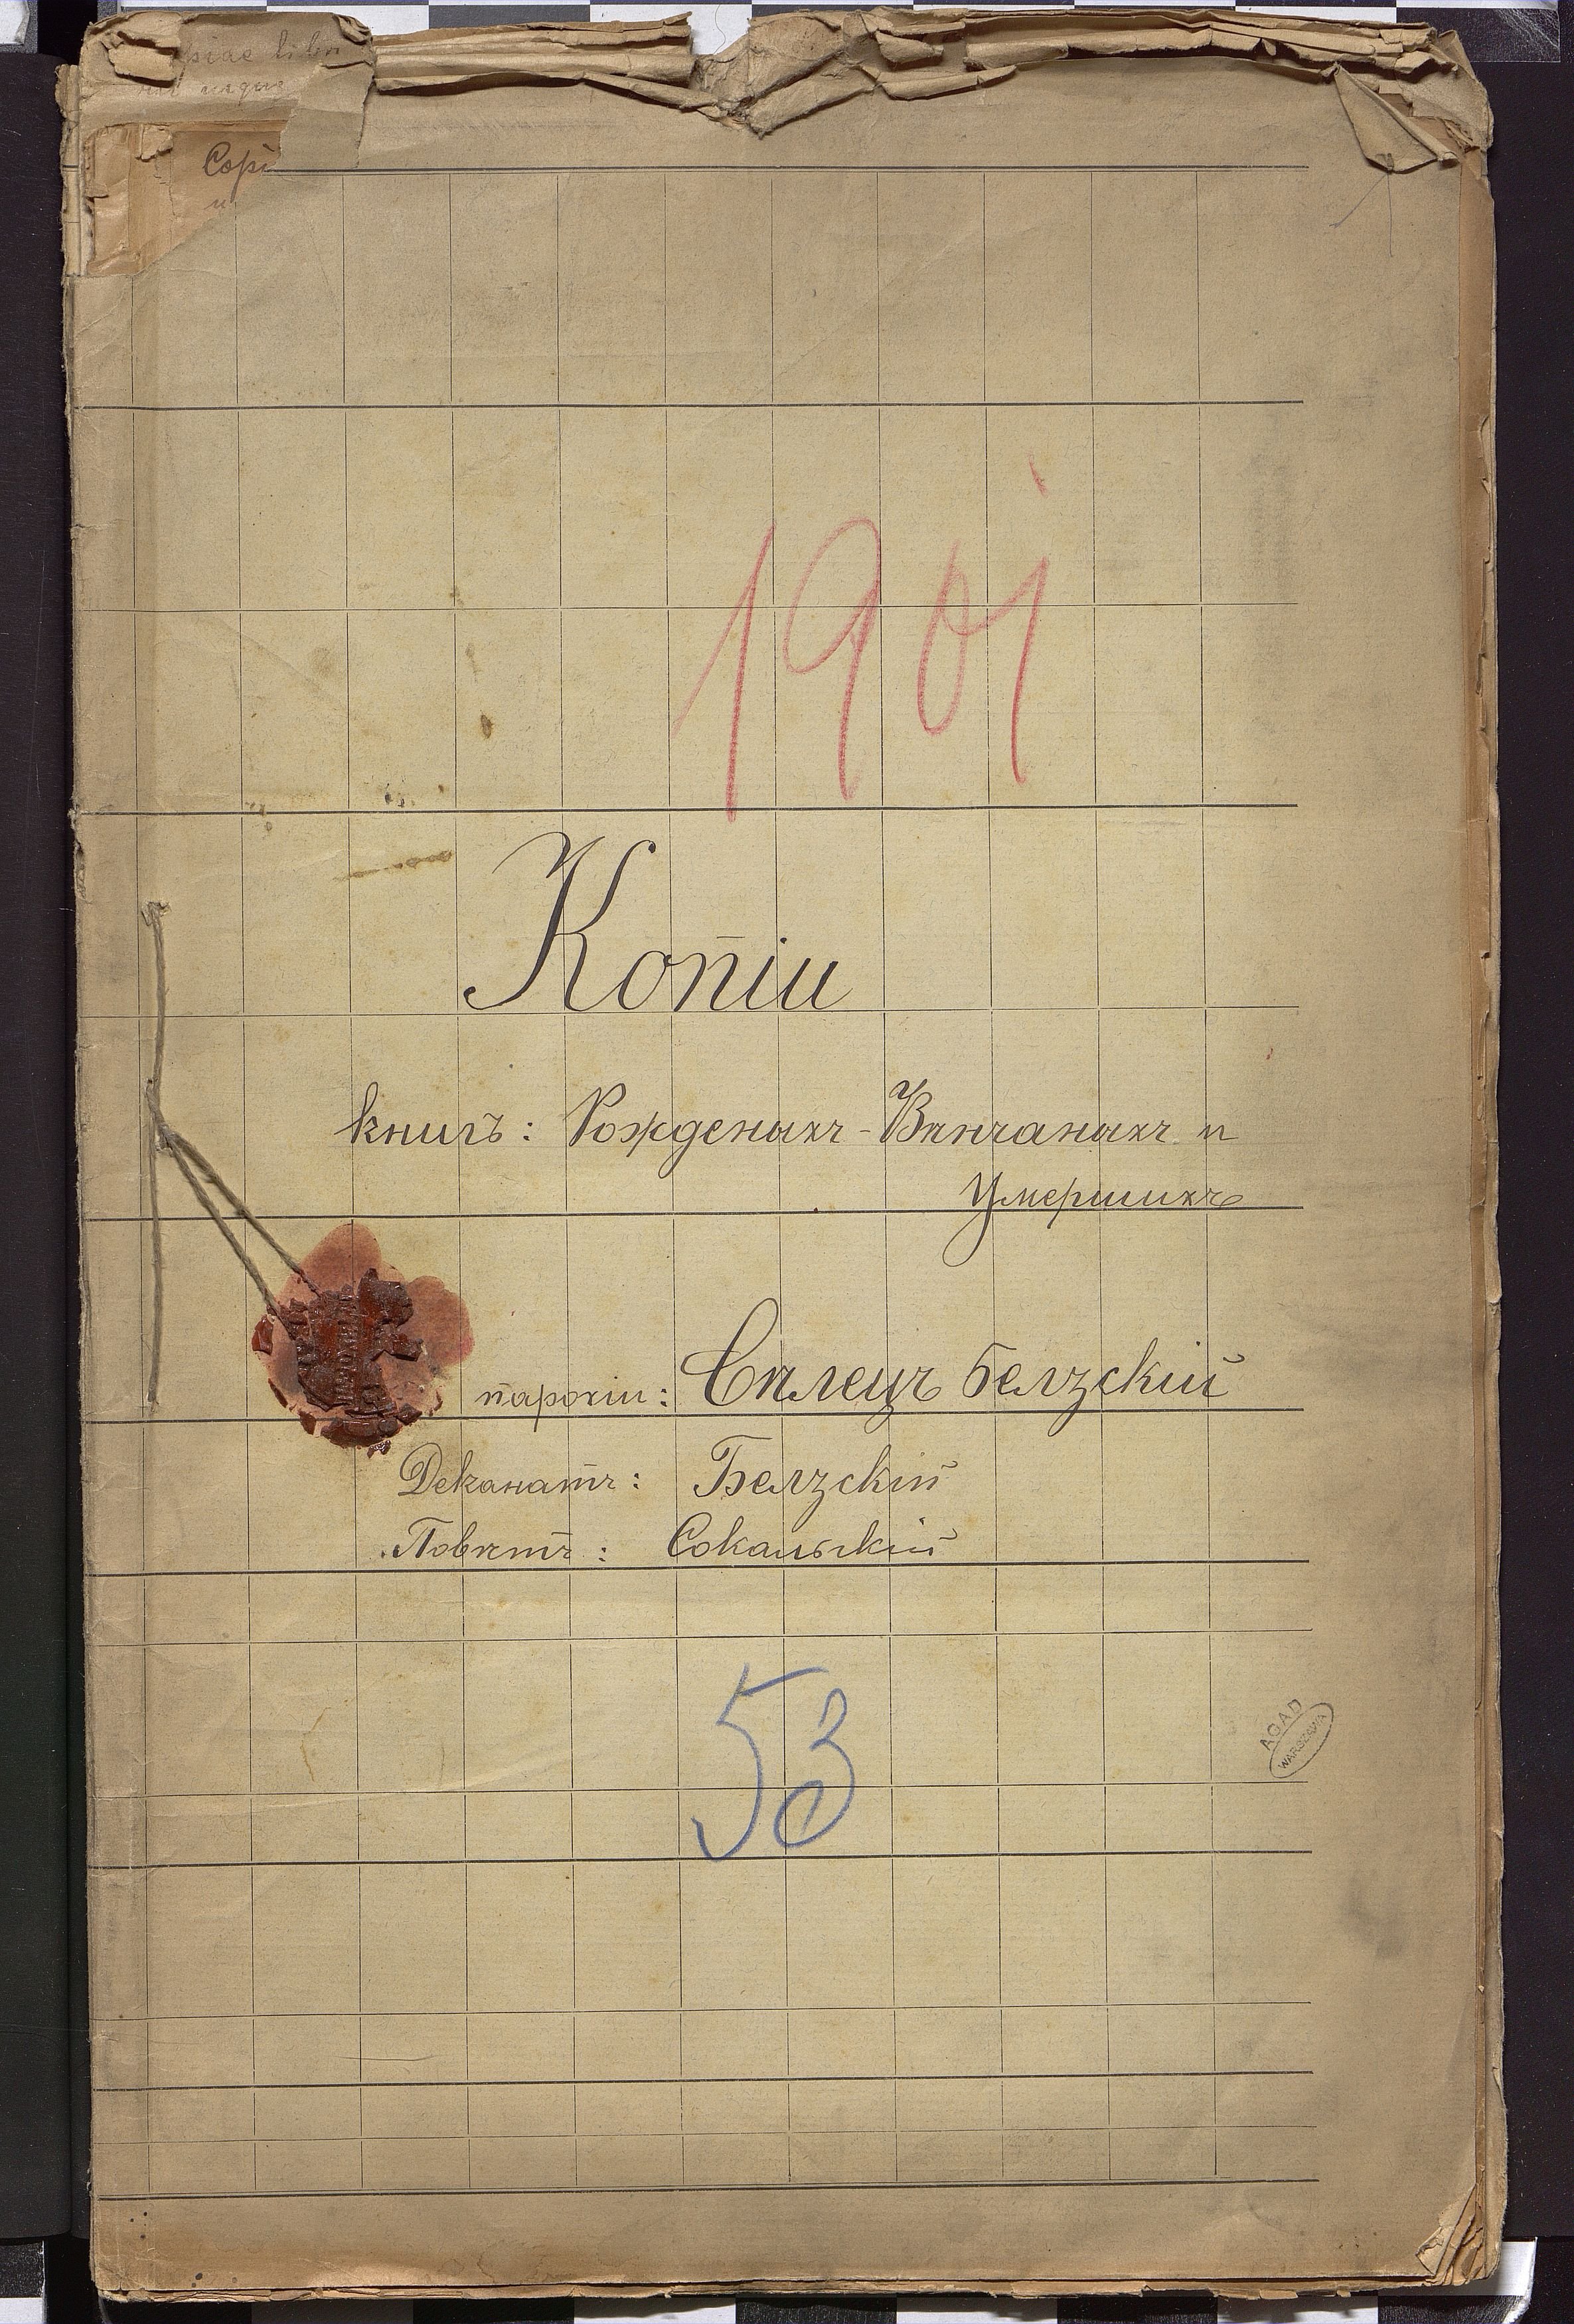 piae libri
usque
Copi
u
1901
Копіи
книгъ: Рожденыхъ-Вѣнчаныхъ и
Умершихъ
парохіи: Сѣлецъ белзскій
Деканатъ: Белзскій
Повѣтъ: Сокальскій
53
AGAD
WARSZAWA